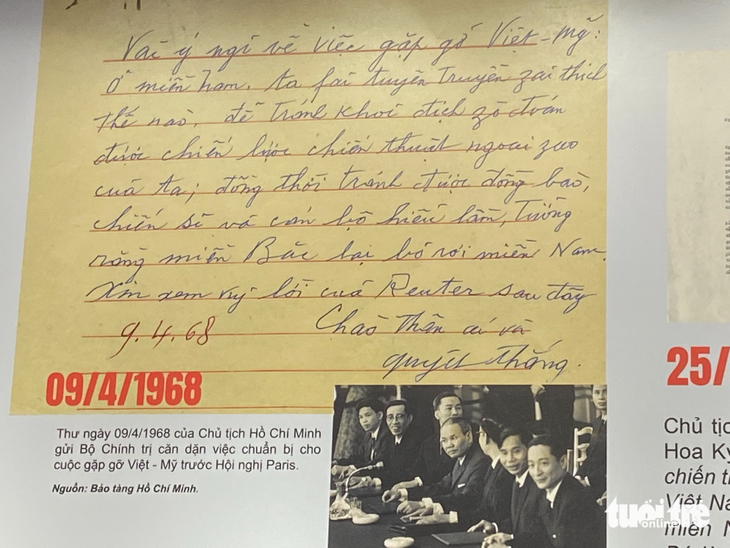 Vài ý ngĩ về việc gặp gỡ Việt-Mỹ:
Ở miền Nam, ta fải tuyên truyền zải thích
thế nào, để tránh khỏi địch zò đoán
được chiến lược chiến thuật ngoại zao
của ta; đồng thời tránh được đồng bào,
chiến sĩ và cán bộ hiểu lầm, tưởng
rằng miền Bắc lại bỏ rơi miền Nam.
Xin xem kỹ lời của Reuter sau đây
9.4.68
Chào thân ái và
quyết thắng.
09/4/1968
Thư ngày 09/4/1968 của Chủ tịch Hồ Chí Minh
gửi Bộ Chính trị căn dặn việc chuẩn bị cho
cuộc gặp gỡ Việt - Mỹ trước Hội nghị Paris.
Nguồn: Bảo tàng Hồ Chí Minh.
25/
Chủ tịc
Hoa Kỳ
chiến tr
Việt Na
miền N
tuổi trẻ
online